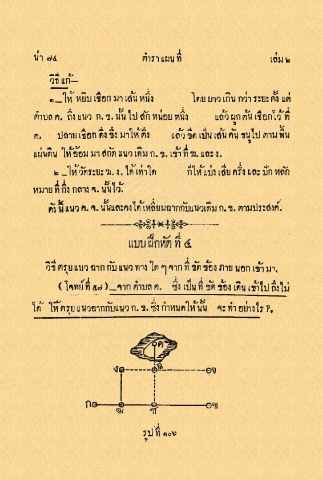 น่า ๗๔ ตำราแผนที่ เล่ม ๒
วิธีแก้—
๑__ให้ หยิบเชือกมาเส้นหนึ่ง โดย ยาวเกิน กว่า ระยะ ตั้ง แต่
ตำบล ค. ถึงแนว ก. ข. นั้นไป สัก หน่อย หนึ่ง แล้ว ผูกต้นเชือกไว้ ที่
ค. ปลายเชือก ดึงขึงมา ให้ ตึง แล้ว ขีด เป็น เส้น คัน ธนูไป ตาม พื้น
แผ่นดิน ให้อ้อมมาสกัดแนวเดิม ก. ข. เข้าที่ ฆ. และ ง.
๒__ให้วัดระยะ ฆ. ง. ได้เท่าใด ก็ให้แบ่งเสี้ยครึ่ง และปักหลัก
หมายที่กึ่งกลาง จ. นั้นไว้.
ดังนี้แนว ค. จ. นั้นและคงได้เหลี่ยมฉากกับแนวเดิม ก. ข. ตามประสงค์.
แบบฝึกหัดที่ ๕
วิธีตรุยแนวฉากกับแนวทางใดๆจากที่ขัดข้องภายนอกเข้ามา.
(โจทย์ที่ ๔๗)__จากตำบล ค. ซึ่งเป็นที่ขัดข้องเดินเข้าไปถึงไม่
ได้ ให้ตรุยแนวฉากกับแนว ก. ข. ซึ่งกำหนดให้นั้น จะทำอย่างไร ?.
ค
ง จ
ก ฆ ข
รูปที่ ๑๐๖